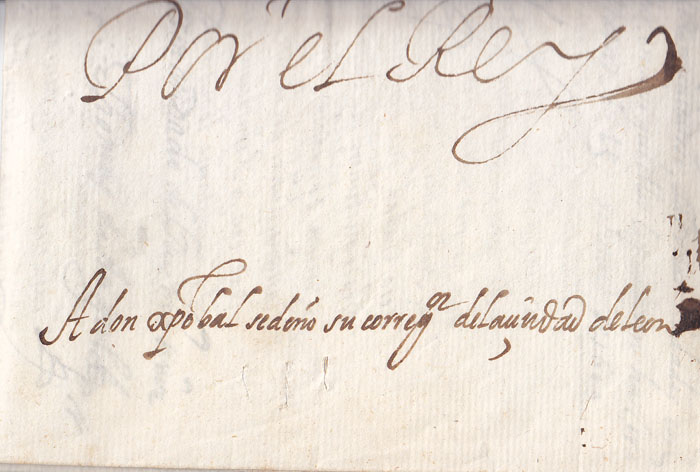 Por el Rey
A don xpobal sedeño su corregor dela çiudad de leon